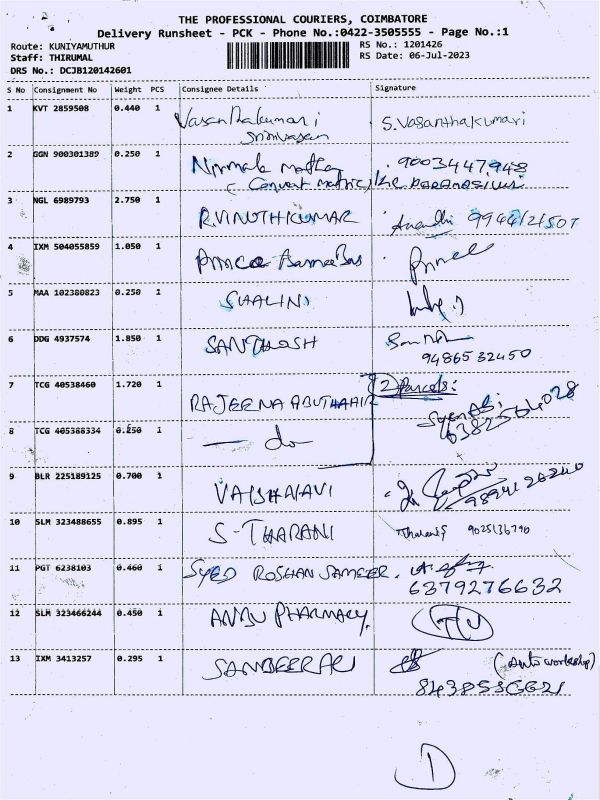 THE PROFESSIONAL COURIERS, COIMBATORE
Delivery Runsheet - PCK - Phone No.:0422-3505555 - Page No.:1
Route: KUNIYAMUTHUR
RS No.: 1201426
Staff: THIRUMAL
RS Date: 06-Jul-2023
DRS No.: DCJB120142601
S No Consignment No Weight PCS Consignee Details Signature
1 KVT 2859508 0.440 1 Vasanthakumari S.Vasanthakumari
Srinivasan
2 GGN 900301389 0.250 1 Nirmala 9003447948
3 NGL 6989793 2.750 1 R.VINOTHKUMAR 9944121507
4 IXM 504055859 1.050 1 Prince Prince
5 MAA 102380823 0.250 1 SHALINI
6 DDG 4937574 1.850 1 SANTHOSH
9486532450
7 TCG 40538460 1.720 1 RAJEENA ABUTHAHIR 2 Parcels:
8 TCG 405388334 0.250 1 do
9 BLR 225189125 0.700 1 VAISHNAVI
10 SLM 323488655 0.895 1 S-THARANI Tharani S 9025136790
11 PGT 6238103 0.460 1 SYED ROSHAN SAMEER.
6379276632
12 SLM 323466244 0.450 1 ANBU PHARMACY.
13 IXM 3413257 0.295 1 (Auto workshop)
1